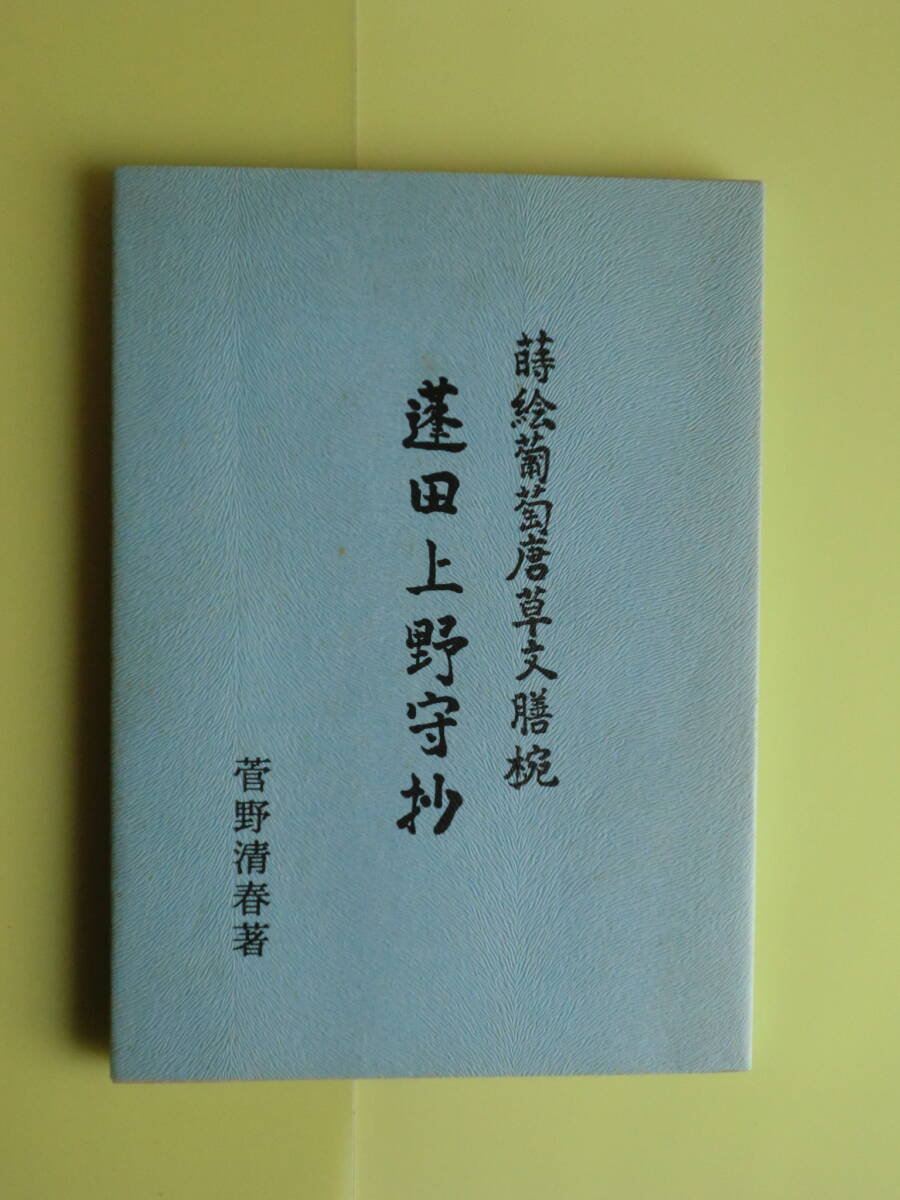 蒔絵葡萄唐草文膳椀
蓬田上野守抄
菅野清春著